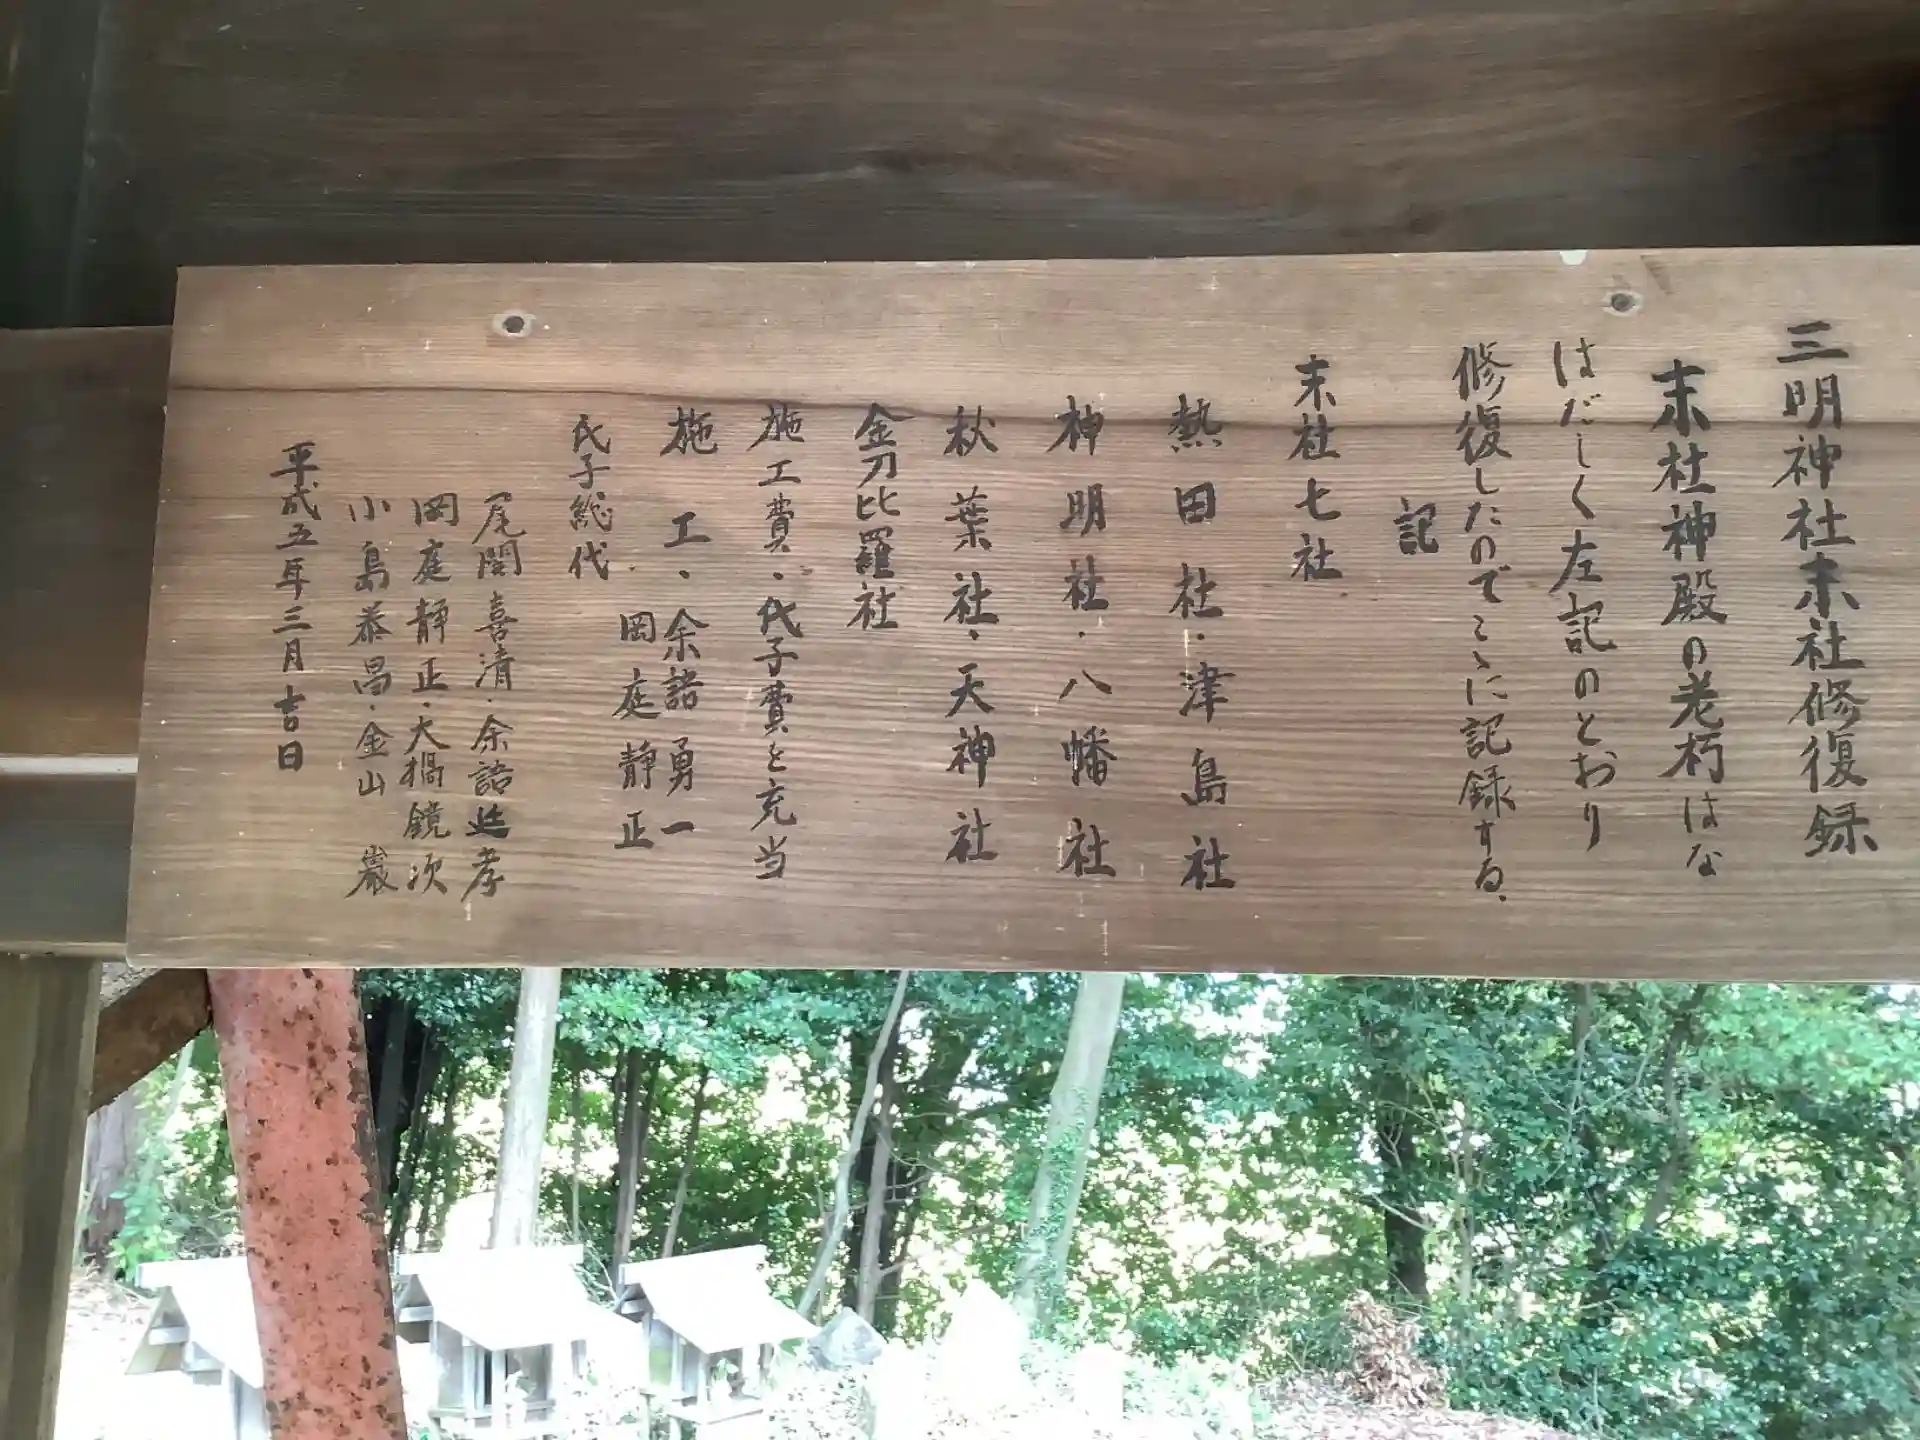 三明神社末社修復録
末社神殿の老朽はな
はだしく左記のとおり
修復したのでここに記録する、
記
末社七社
熱田社・津島社
神明社・八幡社
秋葉社・天神社
金刀比羅社
施工費・氏子費を充当
施工・余語勇一
岡庭静正
氏子総代
尾関喜清・余語延孝
岡庭静正・大橋鏡次
小島恭昌・金山巌
平成五年三月吉日